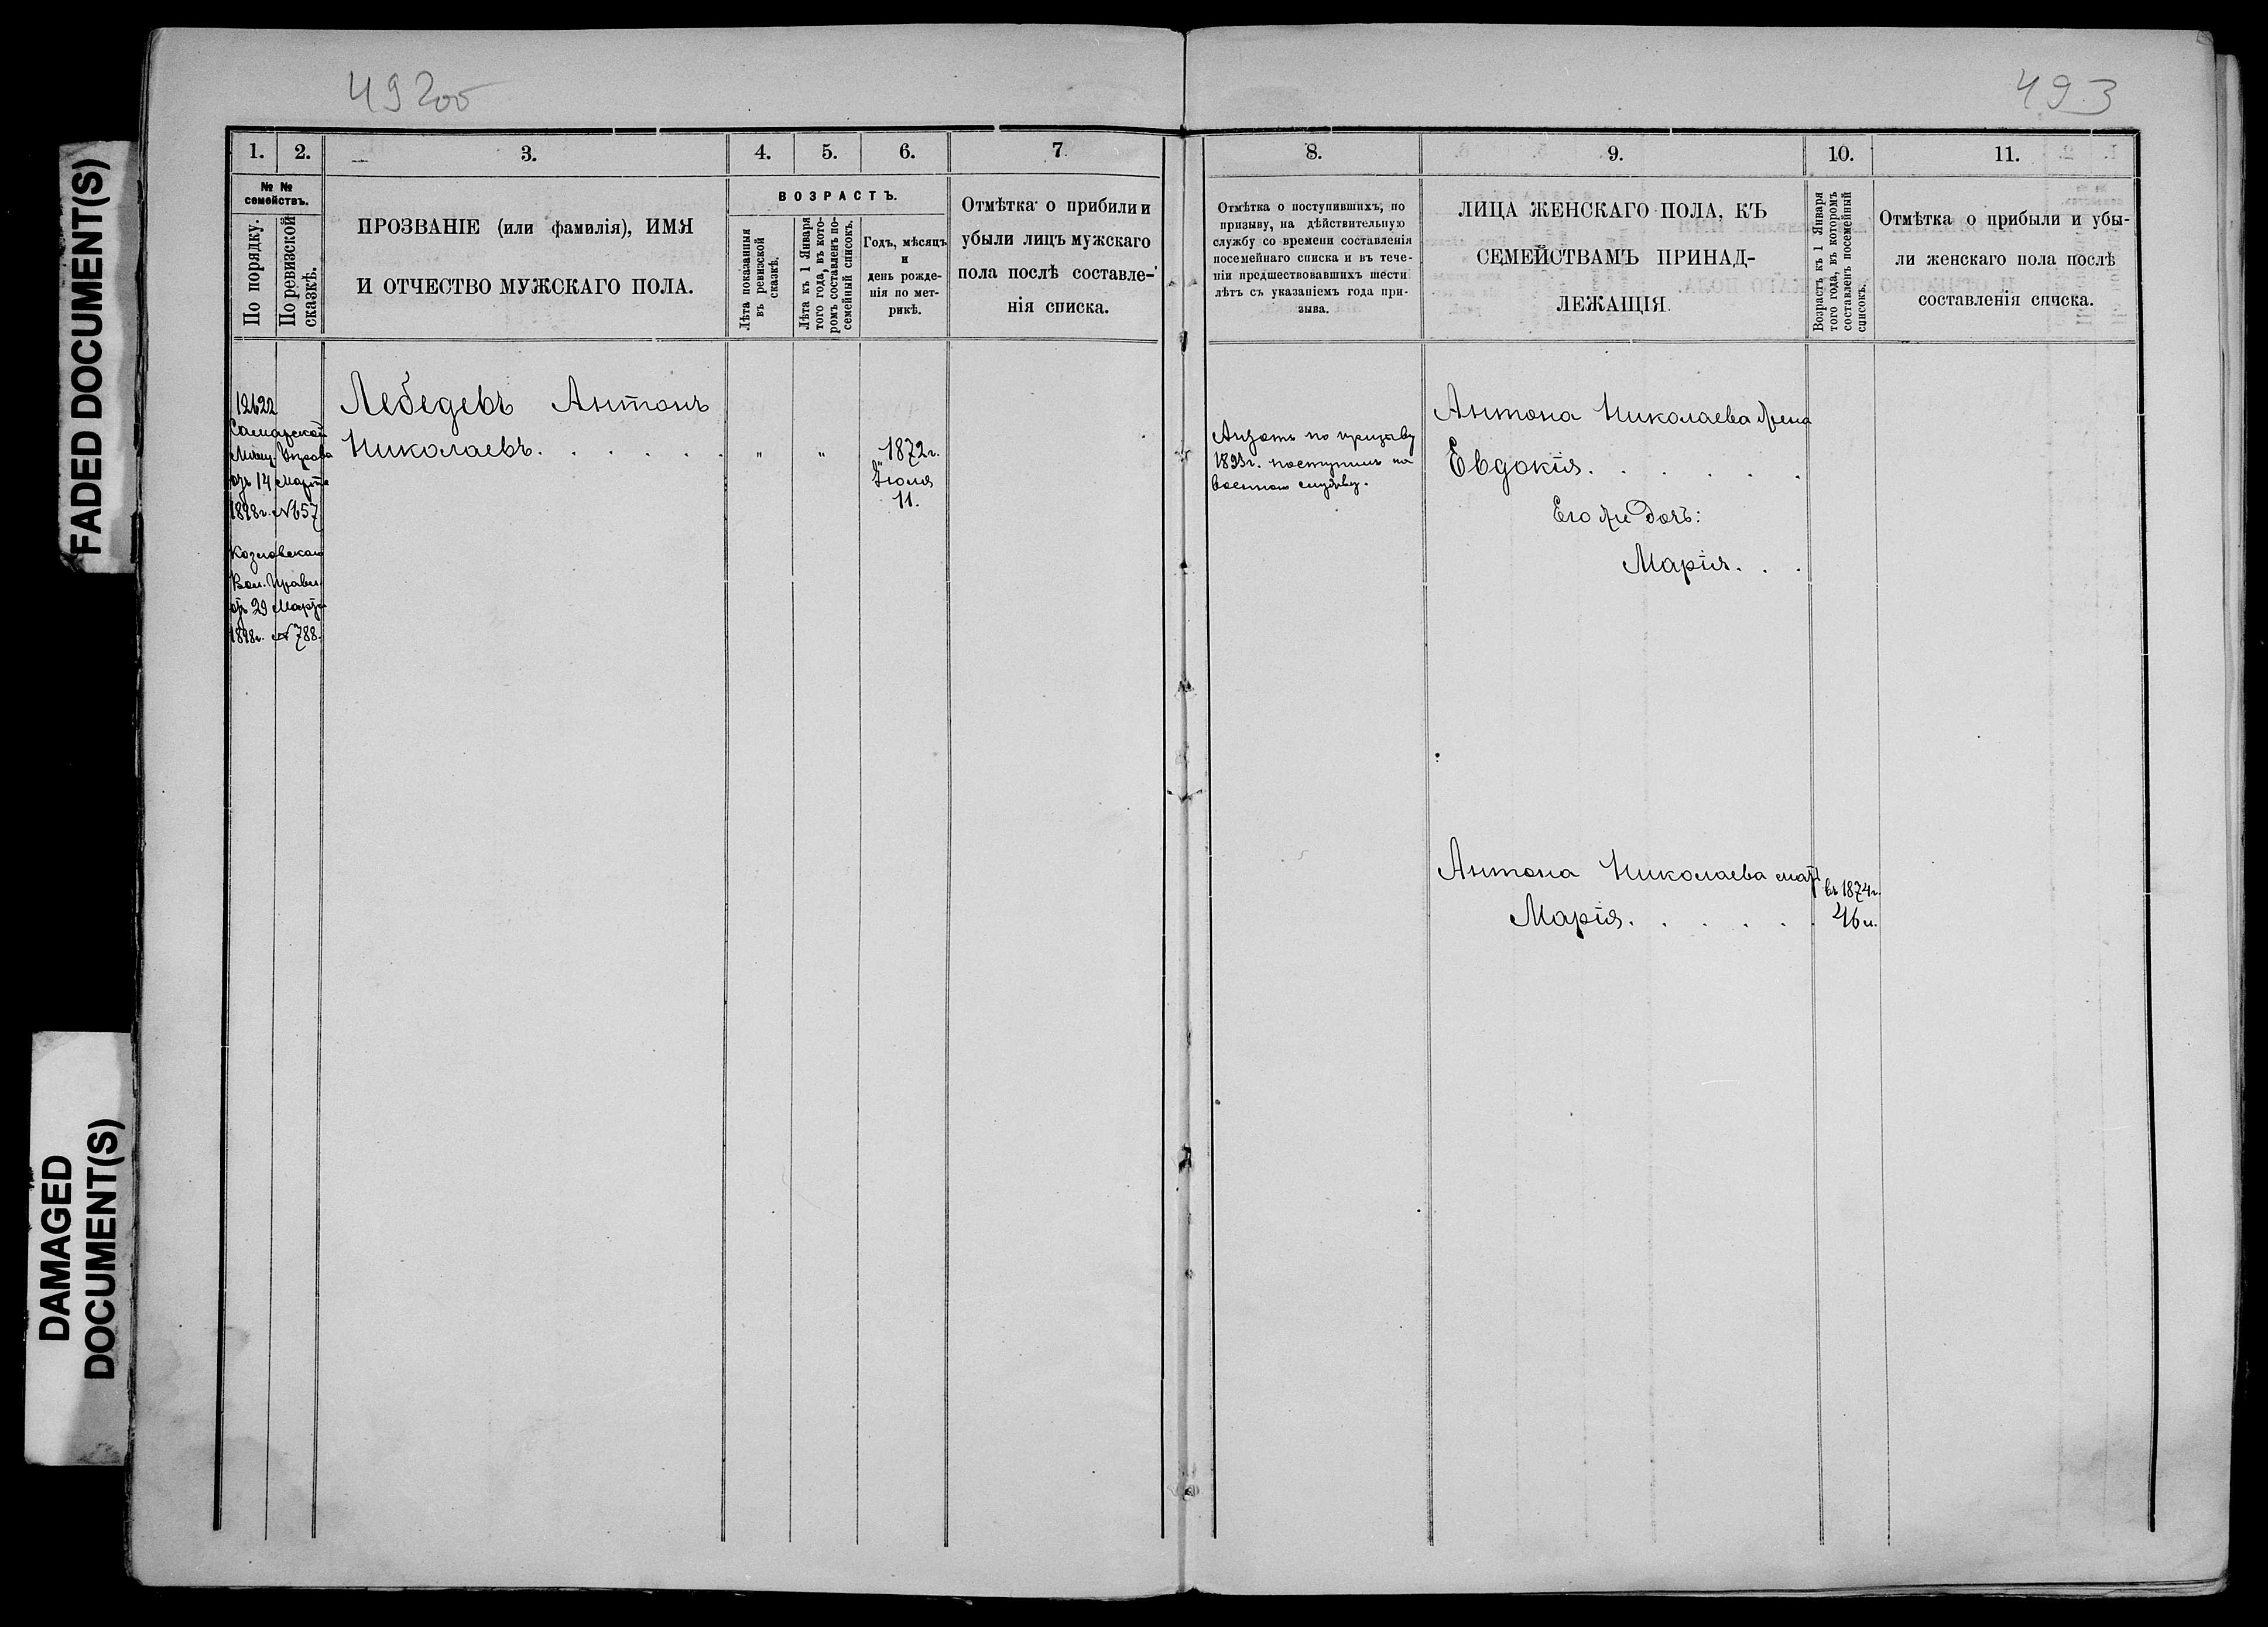 492об
493
FADED DOCUMENT(S)
DAMAGED
DOCUMENT(S)
1.
2.
3.
4.
5.
6.
7.
№ №
семействъ.
По порядку.
По ревизской
сказкѣ.
ПРОЗВАНІЕ (или фамилія), ИМЯ
И ОТЧЕСТВО МУЖСКАГО ПОЛА.
ВОЗРАСТЪ.
Лѣта показанныя
въ ревизской
сказкѣ.
Лѣта къ 1 Января
того года, въ кото-
ромъ составленъ по-
семейный списокъ.
Годъ, мѣсяцъ
и
день рожде-
нія по мет-
рикѣ.
Отмѣтка о прибыли и
убыли лицъ мужскаго
пола послѣ составле-
нія списка.
12622
Самарской
Мѣщ. Управы
отъ 14 Марта
1898г. №657
Козловскаго
Вол. Правл.
отъ 29 Марта
1898г. №788.
Лебедевъ Антонъ
Николаевъ. . . . . .
"
"
1872г.
Іюля
11.
8.
9.
10.
11.
Отмѣтка о поступившихъ, по
призыву, на дѣйствительную
службу со времени составленія
посемейнаго списка и въ тече-
ніи предшествовавшихъ шести
лѣтъ съ указаніемъ года при-
зыва.
ЛИЦА ЖЕНСКАГО ПОЛА, КЪ
СЕМЕЙСТВАМЪ ПРИНАД-
ЛЕЖАЩІЯ.
Возрастъ къ 1 Января
того года, въ которомъ
составленъ посемейный
списокъ.
Отмѣтка о прибыли и убы-
ли женскаго пола послѣ
составленія списка.
Антонъ по призыву
1893г. поступилъ на
военную службу.
Антона Николаева жена
Евдокія. . . . . .
Его же дочь:
Марія. . .
Антона Николаева мать
Марія. . . . . .
въ 1874г.
46 л.